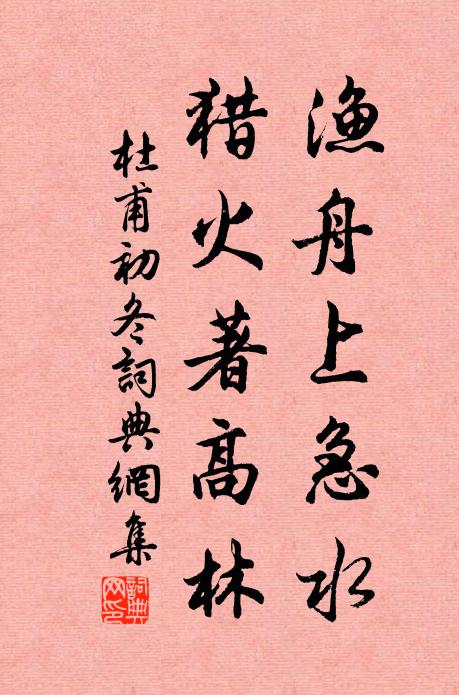 渔舟上急水
猎火著高林
杜甫初冬詞典網集
詞典网印